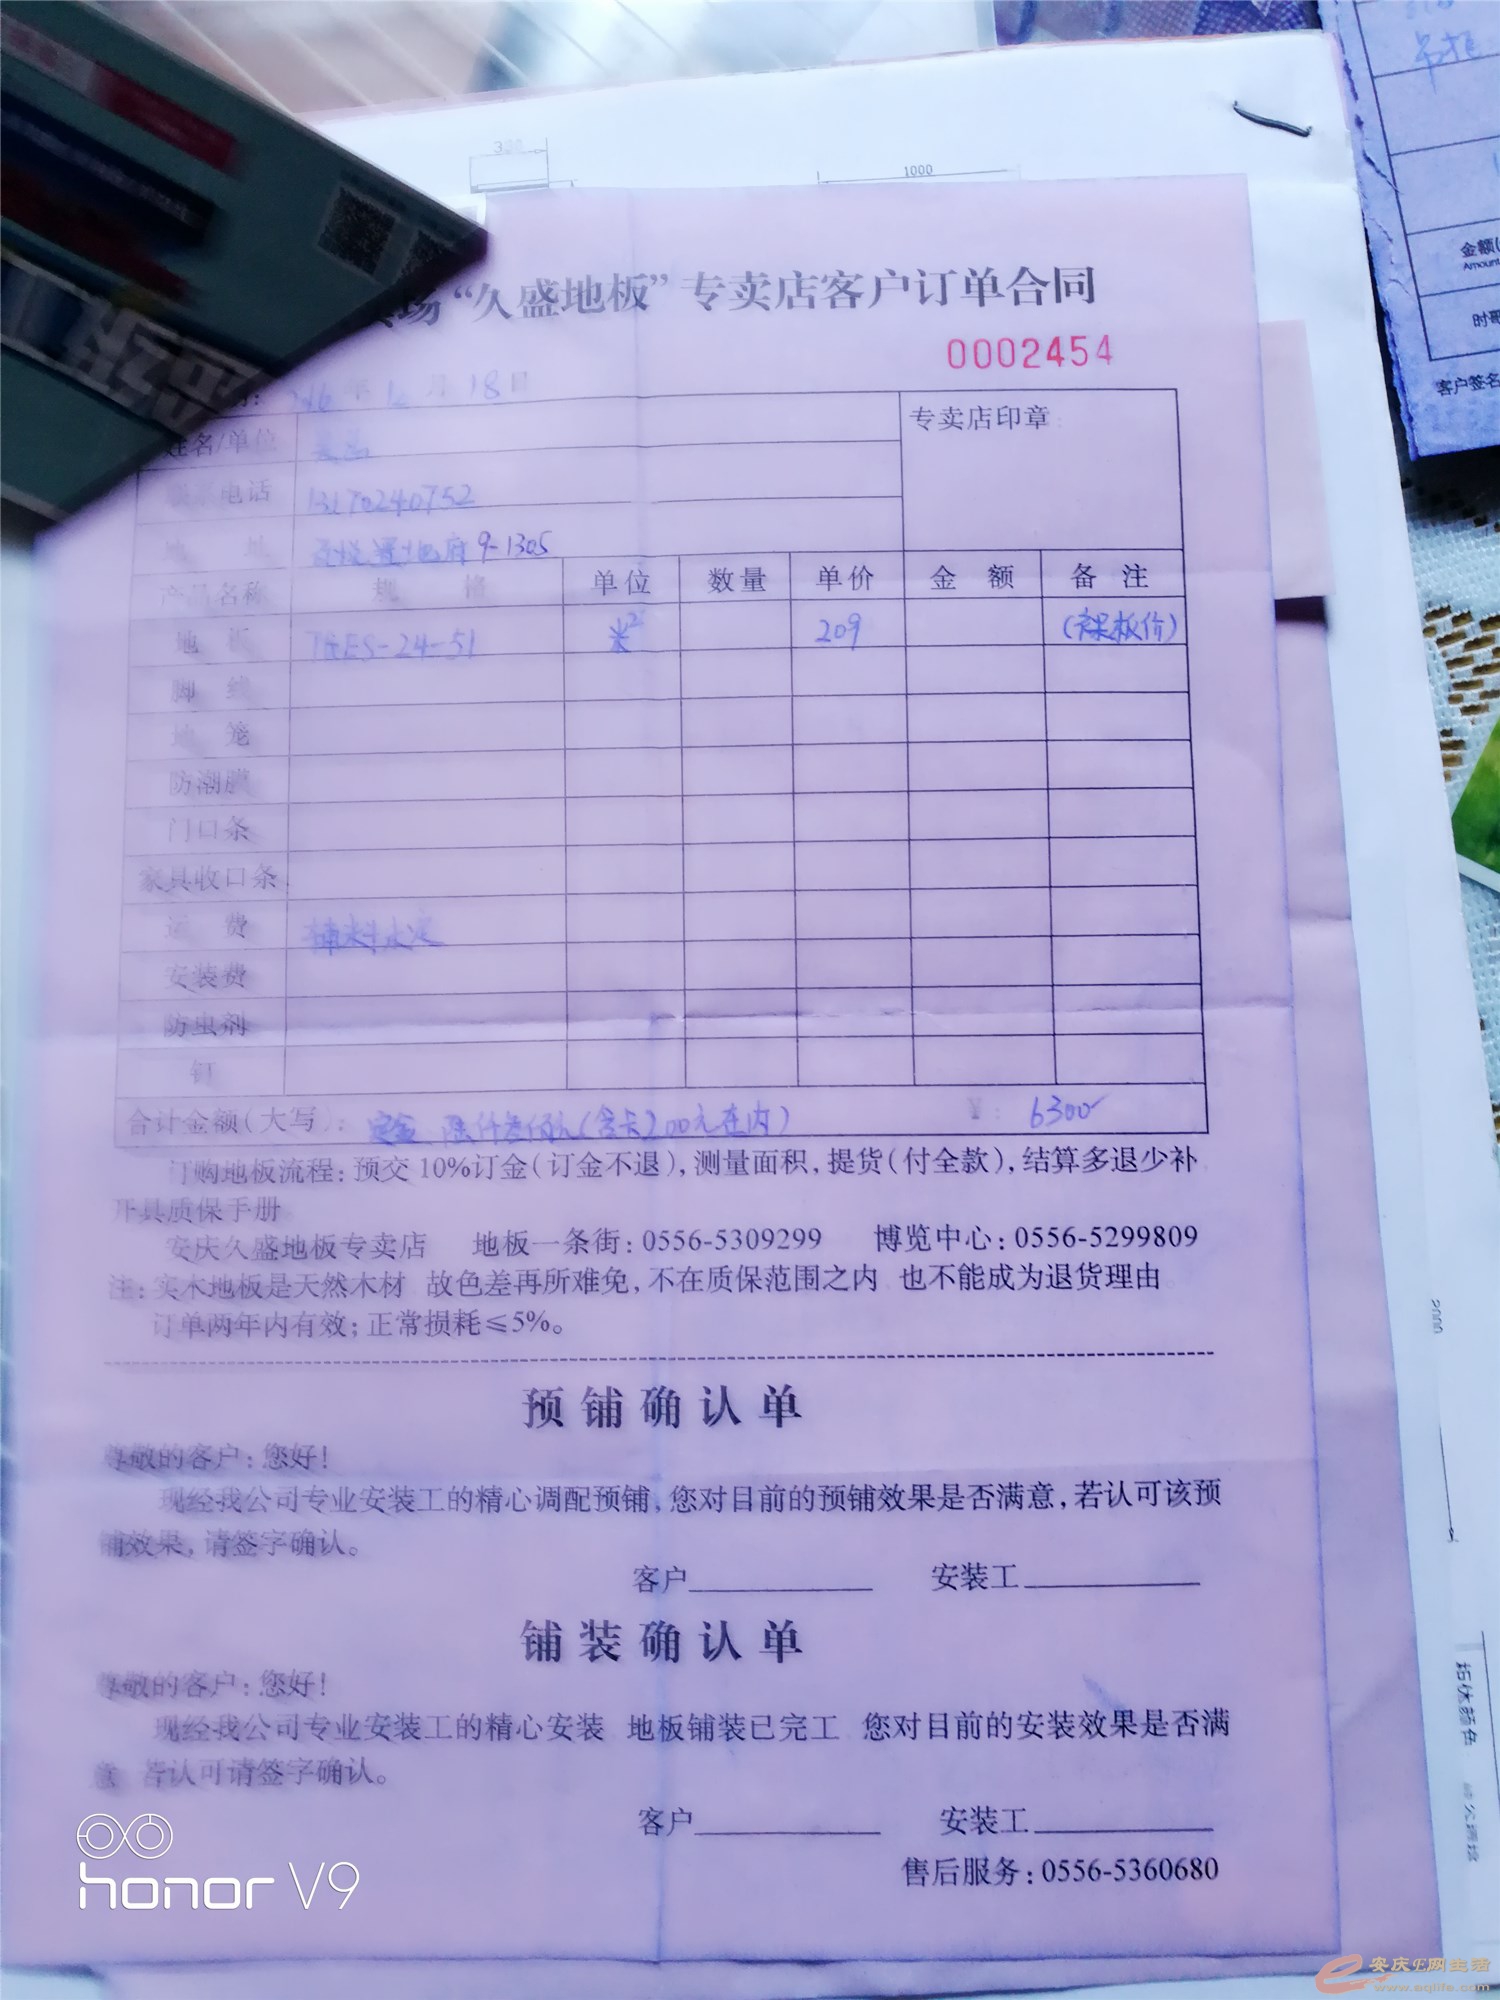 300
1000
吊柜
金额(
Amount
时哥
客户签名
场“久盛地板”专卖店客户订单合同
0002454
年 月 18日
专卖店印章
姓名/单位
联系电话 13170240752
地 址 9-1305
产品名称 规 格 单位 数量 单价 金 额 备 注
地 板 -24-51 米² 209 (裸板价)
脚 线
地 笼
防潮膜
门口条
家具收口条
运 费 辅料水泥
安装费
防虫剂
钉
合计金额(大写): 定金 (含卡200元在内) ¥: 6300
订购地板流程:预交10%订金(订金不退),测量面积,提货(付全款),结算多退少补
开具质保手册
安庆久盛地板专卖店 地板一条街:0556-5309299 博览中心:0556-5299809
注:实木地板是天然木材 故色差再所难免,不在质保范围之内 也不能成为退货理由
订单两年内有效;正常损耗≤5%。
预铺确认单
尊敬的客户:您好!
现经我公司专业安装工的精心调配预铺,您对目前的预铺效果是否满意,若认可该预
铺效果,请签字确认。
客户 安装工
铺装确认单
尊敬的客户:您好!
现经我公司专业安装工的精心安装 地板铺装已完工 您对目前的安装效果是否满
意 若认可请签字确认。
客户 安装工
售后服务:0556-5360680
honor V9
安庆E网生活
www.aqlife.com